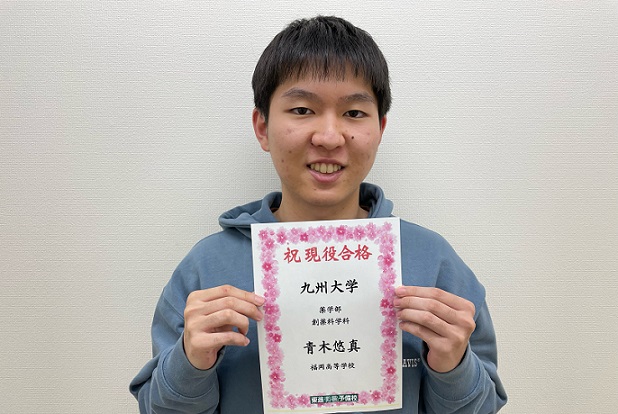 祝 現役合格
九州大学
薬学部
創薬科学科
青木悠真
福岡高等学校
予備校
AVIS